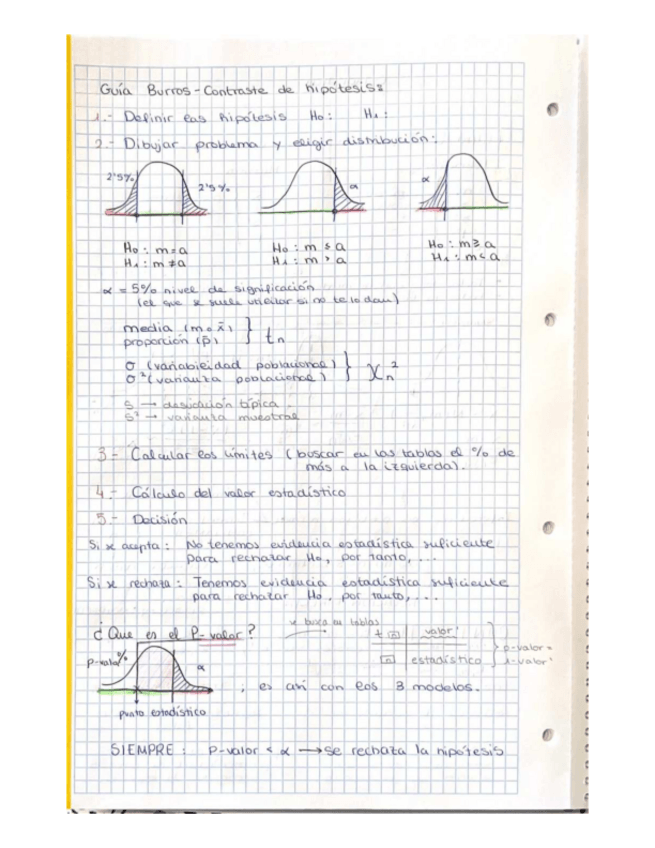 Guía Burros - Contraste de hipótesis:
1.- Definir las hipótesis H0: H1:
2.- Dibujar problema y elegir distribución:
2'5% 2'5% α α
H0: m = a H0: m ≤ a H0: m ≥ a
H1: m ≠ a H1: m > a H1: m < a
α = 5% nivel de significación
(el que se suele utilizar si no te lo dan)
media (m o x̄) } tn
proporción (p̄)
σ (variabilidad poblacional) } χn²
σ² (varianza poblacional)
S → desviación típica
S² → varianza muestral
3.- Calcular los límites (buscar en las tablas el % de
más a la izquierda).
4.- Cálculo del valor estadístico
5.- Decisión
Si se acepta: No tenemos evidencia estadística suficiente
para rechazar H0, por tanto, ...
Si se rechaza: Tenemos evidencia estadística suficiente
para rechazar H0, por tanto, ...
¿Que es el P-valor? se busca en tablas t n valor'
P-valor% α estadístico p-valor =
1-valor'
, es así con los 3 modelos.
punto estadístico
SIEMPRE: P-valor < α → se rechaza la hipótesis